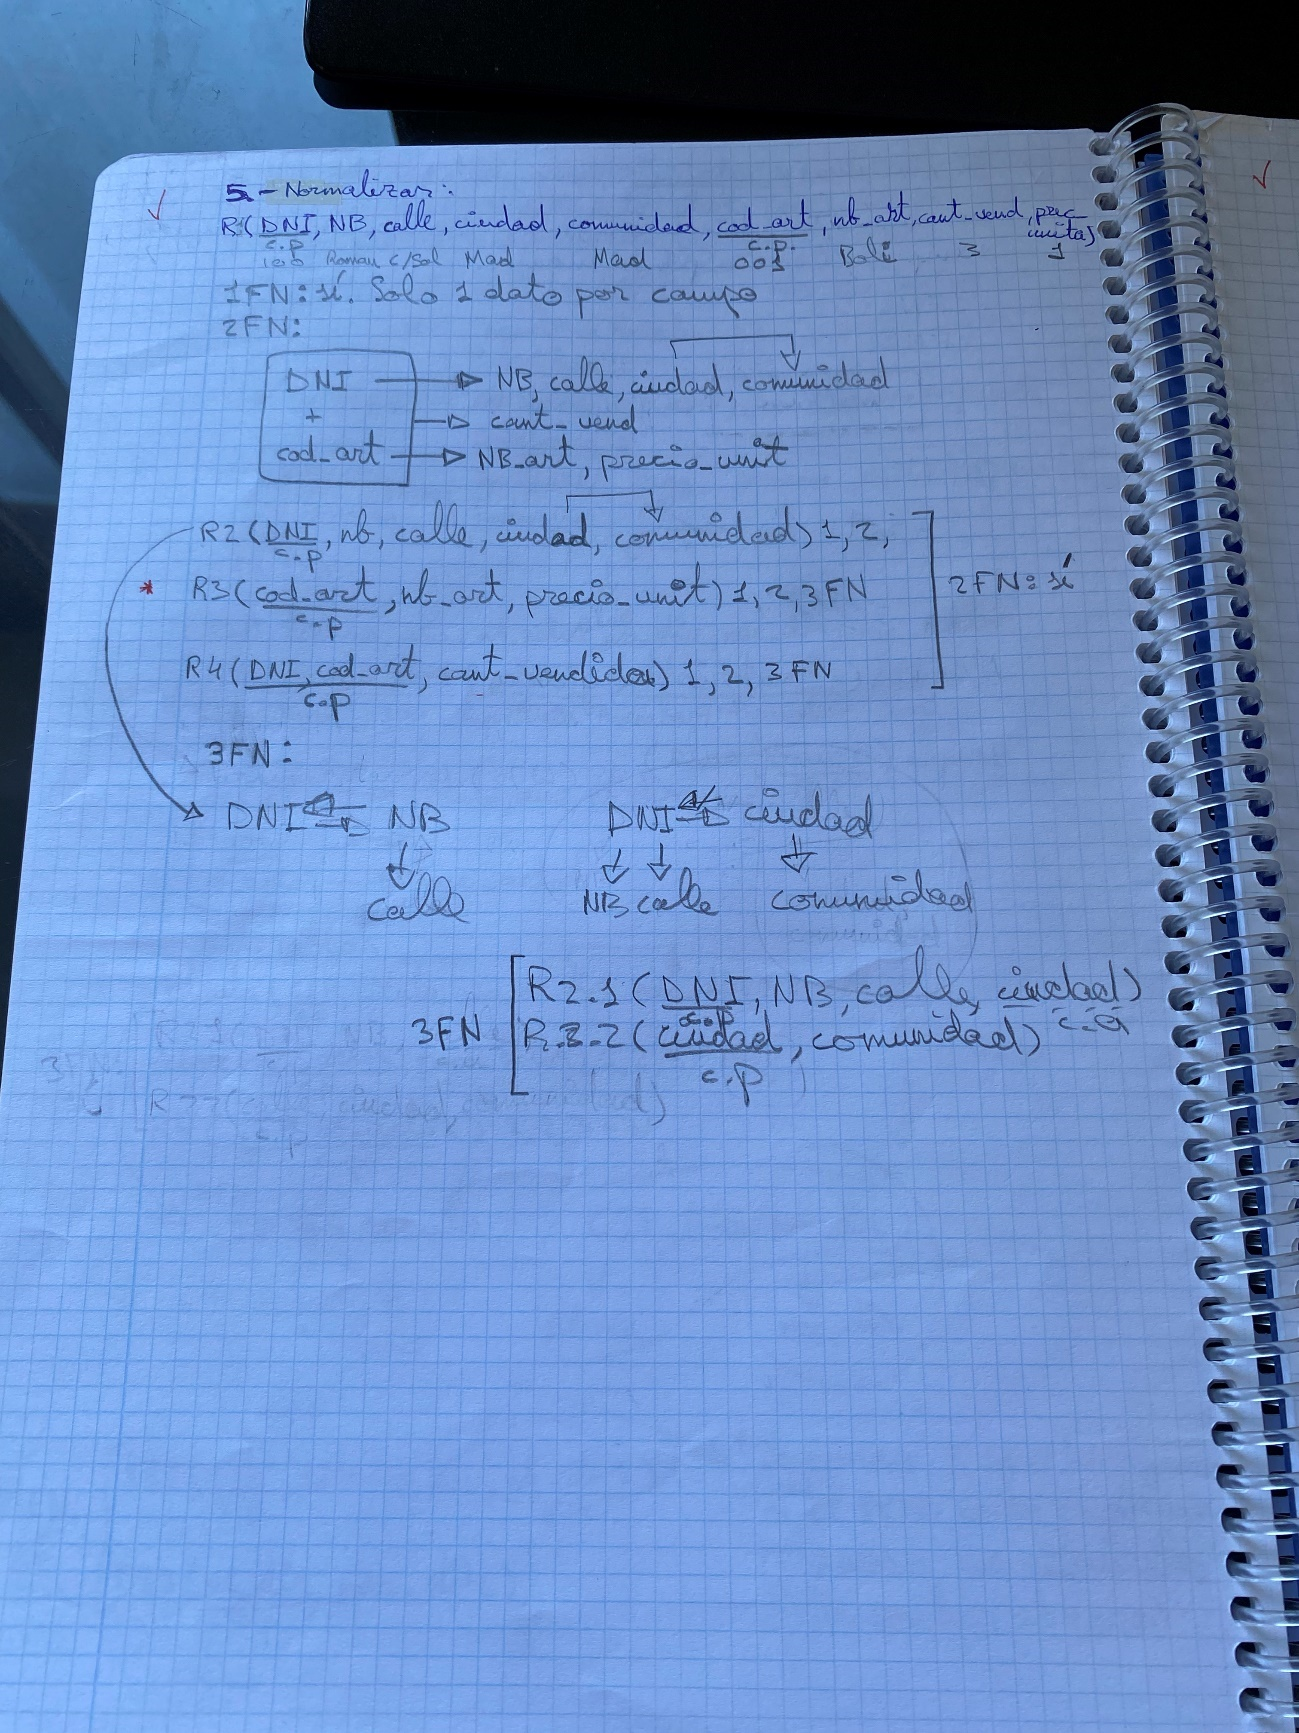 5.- Normalizar:
R1(DNI, NB, calle, ciudad, comunidad, cod_art, nb_art, cant_vend, prec_unita)
c.p c.p.
100 Roman c/Sol Mad Mad 001 Boli 3 1
1FN: sí. Solo 1 dato por campo
2FN:
DNI → NB, calle, ciudad, comunidad
+ → cant_vend
cod_art → NB_art, precio_unit
R2 (DNI, nb, calle, ciudad, comunidad) 1, 2,
c.p
* R3 (cod_art, nb_art, precio_unit) 1, 2, 3FN
c.p
2FN: sí
R4 (DNI, cod_art, cant_vendida) 1, 2, 3FN
c.p
3FN:
DNI NB DNI ciudad
calle NB calle comunidad
R2.1 (DNI, NB, calle, ciudad)
c.p c.a
3FN R.2.2 (ciudad, comunidad)
c.p